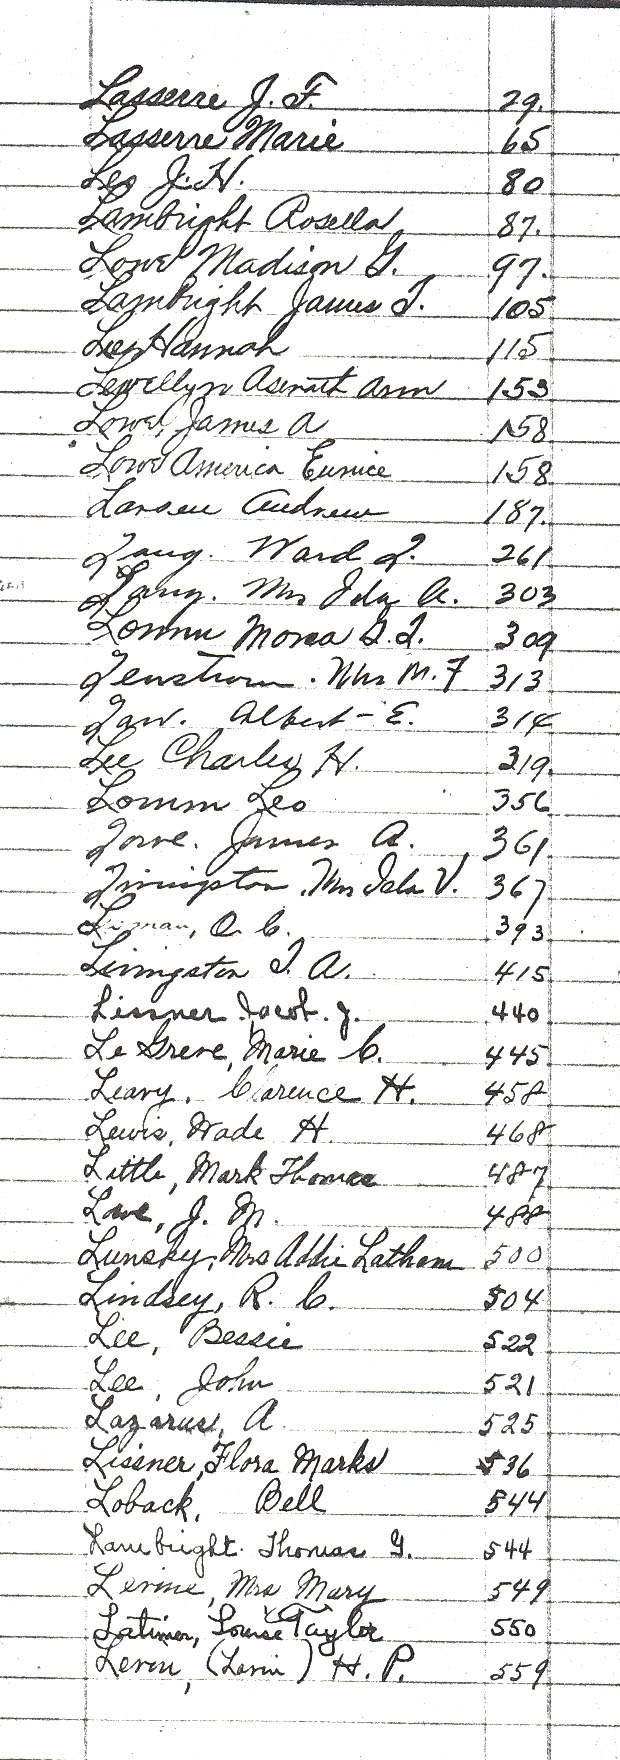 Lasserre J. F. 29.
Lasserre Marie 65
Lee J. H. 80
Lambright Rosella 87.
Lowe Madison G. 97.
Lambright James T. 105
Lee Hannah 115
Lewellyn Asenath Ann 153
Lowe, James A 158
Lowe America Eunice 158
Larsen Andrew 187.
Lang. Ward L. 261
Lang. Mrs Ida A. 303
309
Mrs M. F 313
Law. Albert E. 314
Lee Charles H. 319.
Lomm Leo 356
Lowe. James A. 361
Livingston, Mrs Ida V. 367
O. C. 393
Livingston T. A. 415
Lissner Jacob. J. 440
Le Greve, Marie C. 445
Leavy. Clarence H. 458
Lewis, Wade H. 468
Little, Mark Thomas 487
Love, J. M. 488
Lunsky, Mrs Addie Latham 500
Lindsey, R. C. 504
Lee, Bessie 522
Lee, John 521
Lazarus, A 525
Lissner, Flora Marks 536
Loback, Bell 544
Lambright. Thomas G. 544
Levine, Mrs Mary 549
Latimer, Louise Taylor 550
Levin, (Lavin) H. P. 559